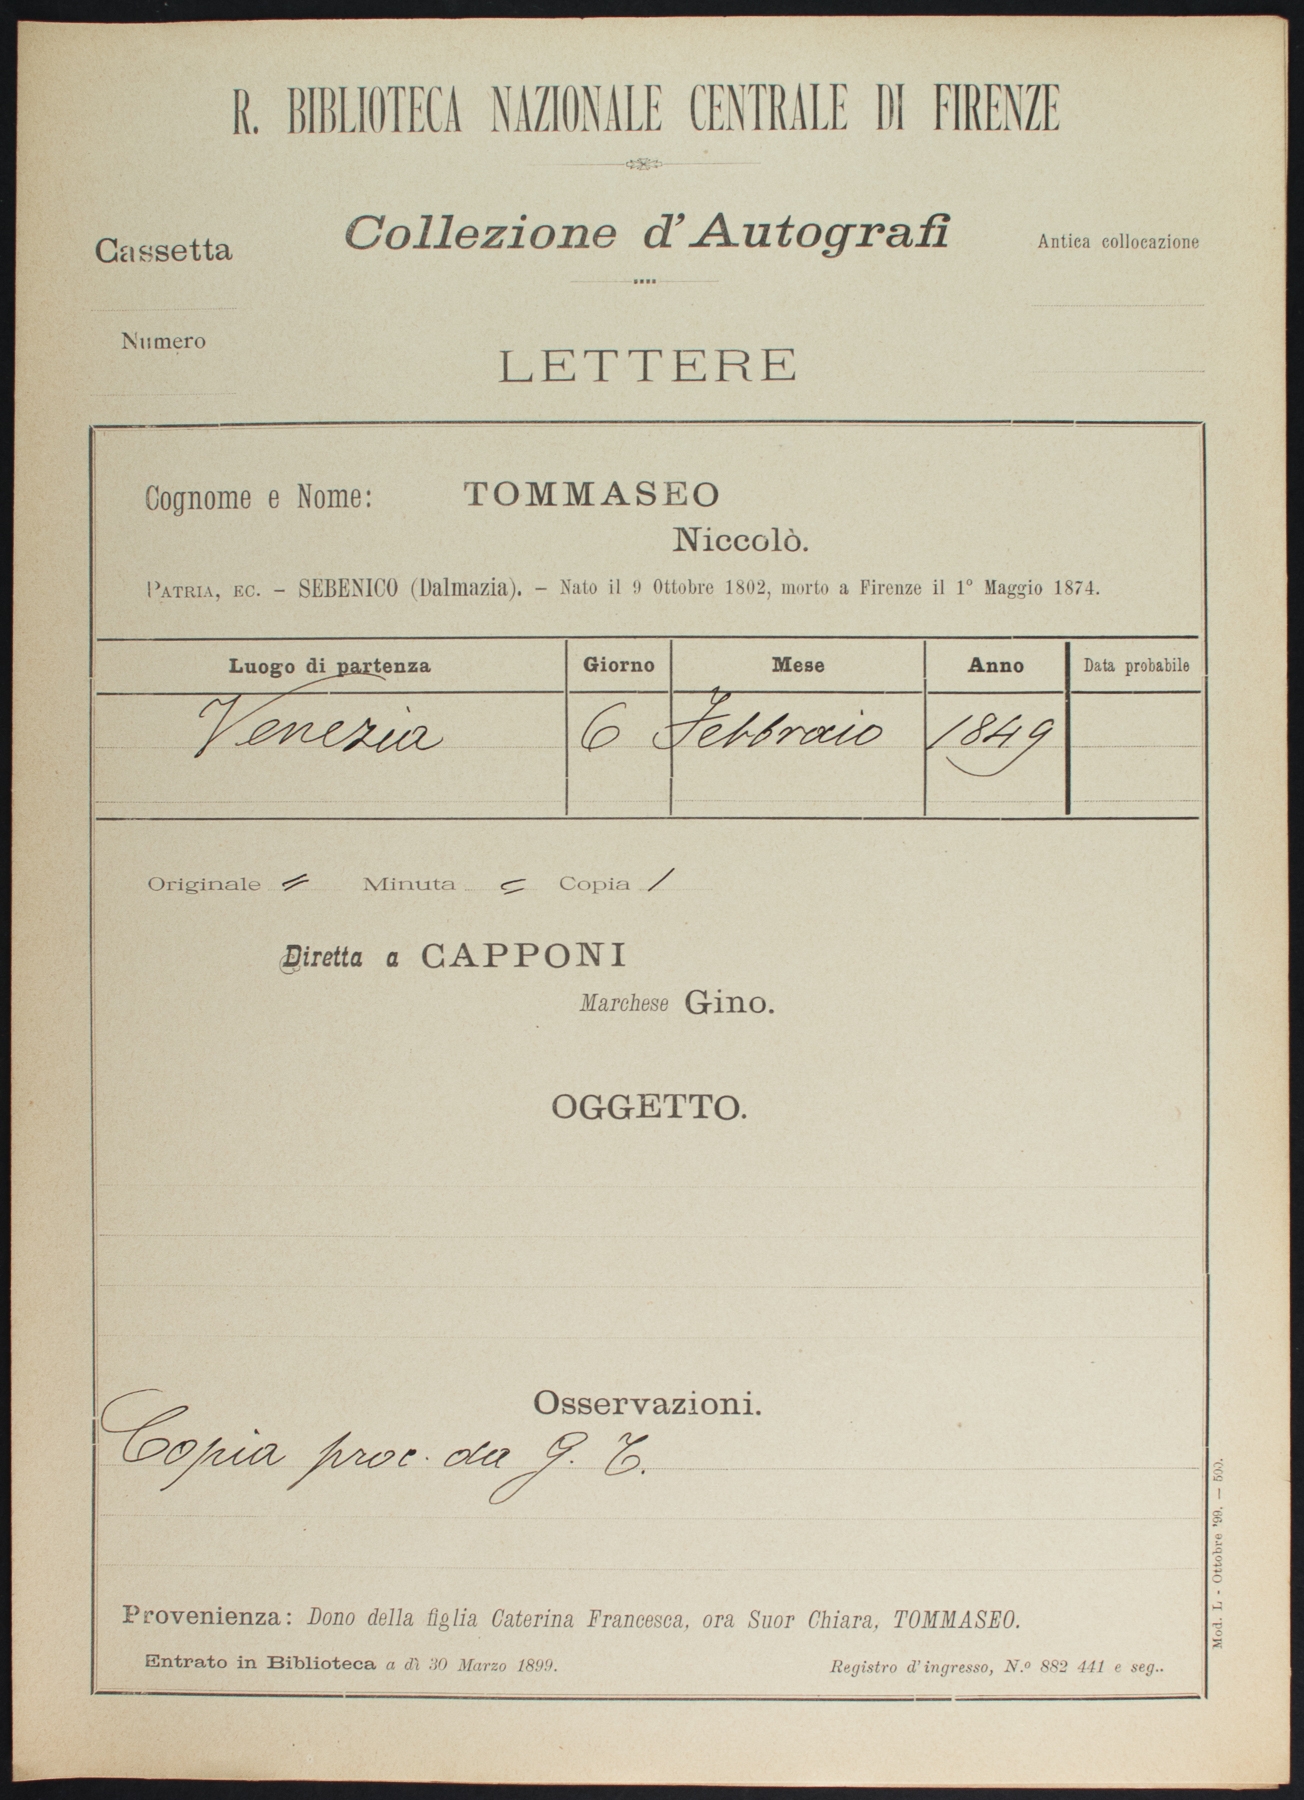 R. BIBLIOTECA NAZIONALE CENTRALE DI FIRENZE
Collezione d'Autografi
Cassetta
Antica collocazione
Numero
LETTERE
Cognome e Nome: TOMMASEO
Niccolò.
PATRIA, EC. – SEBENICO (Dalmazia). – Nato il 9 Ottobre 1802, morto a Firenze il 1° Maggio 1874.
Luogo di partenza Giorno Mese Anno Data probabile
Venezia 6 Febbraio 1849
Originale = Minuta = Copia /
Diretta a CAPPONI
Marchese Gino.
OGGETTO.
Osservazioni.
Copia proc. da G. T.
Provenienza: Dono della figlia Caterina Francesca, ora Suor Chiara, TOMMASEO.
Entrato in Biblioteca a dì 30 Marzo 1899. Registro d'ingresso, N.º 882 441 e seg..
Mod. L - Ottobre '99. — 500.